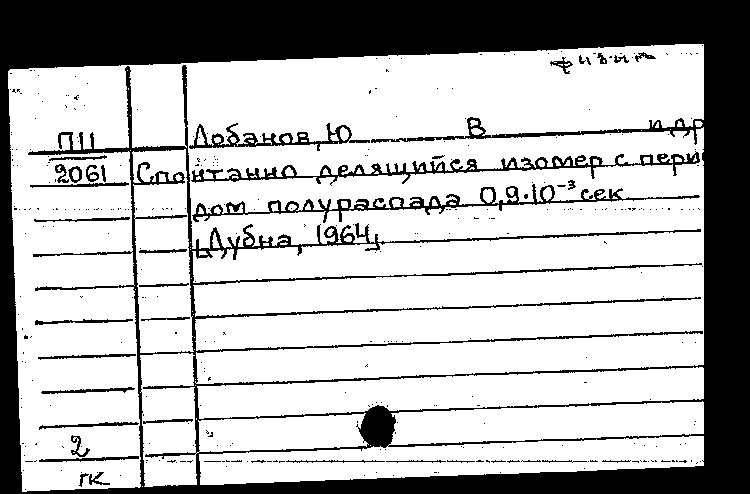 физик
П11 Лобанов, Ю В и др
2061 Спонтанно делящийся изомер с пери
дом полураспада 0,9·10⁻³ сек
[Дубна, 1964].
2
гк